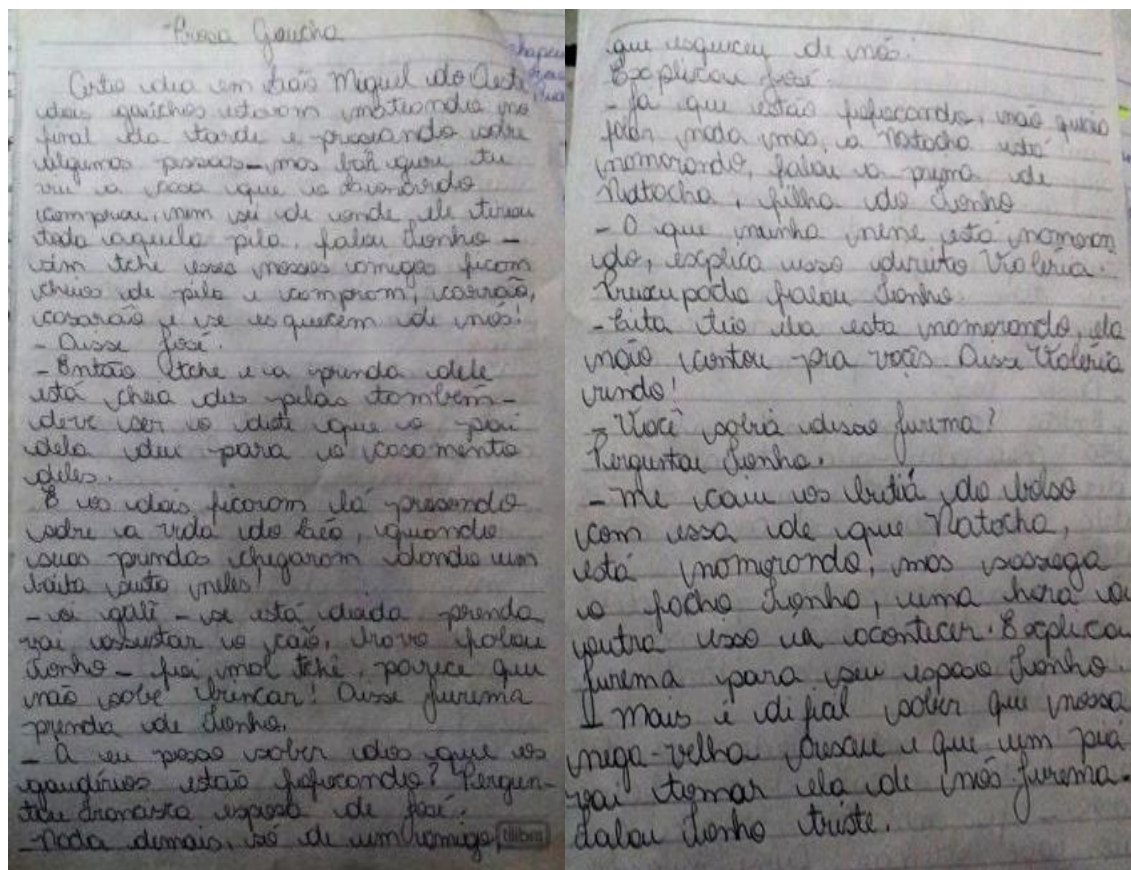 Prosa Gaúcha
Certo dia em São Miguel do Oeste
dois gaúchos estavam mateando no
final da tarde e proseando sobre
algumas pessoas - mas bah guri tu
viu a casa que o
comprou, nem sei de onde ele tirou
toda aquela pila, falou Juonho -
sim tchê esses nossos amigos ficam
cheios de pila e compram, carrão,
casarão e se esquecem de nós!
- Disse José.
- Então tchê e a prenda dele
está cheia das pilas também -
deve ser o dote que o pai
dela deu para o casamento
deles.
E os dois ficaram lá proseando
sobre a vida do , quando
suas prendas chegaram dando um
baita susto neles!
- se está doida prenda
vai assustar o cão, brava falou
Juonho - foi mal tchê, parece que
não sabe brincar! Disse Jurema
prenda de Juonho.
- A eu posso saber dos que os
gaudérios estão fofocando? Pergun-
tou esposa de José.
- Nada demais, só de um amigo, tilibra
que esqueceu de nós.
Explicou José.
- Já que estão fofocando, não queria
falar nada mas, a Natacha está
namorando, falou a prima de
Natacha, filha do Juonho
- O que minha nene está namoran
do, explica isso direito Valéria.
Preucupado falou Juonho.
- Eita tio ela esta namorando, ela
não contou pra vocês. Disse Valéria
rindo!
- Você sabia disso Jurema?
Perguntou Juonho.
- Me caiu os butiá do bolso
com essa de que Natacha,
está namorando, mas sossega
o facho Juonho, uma hora ou
outra isso ia acontecer. Explicou
Jurema para seu esposo Juonho.
- Mais é difial saber que nossa
nega-velha cresceu e que um piá
vai tomar ela de nós Jurema.
Falou Juonho triste.